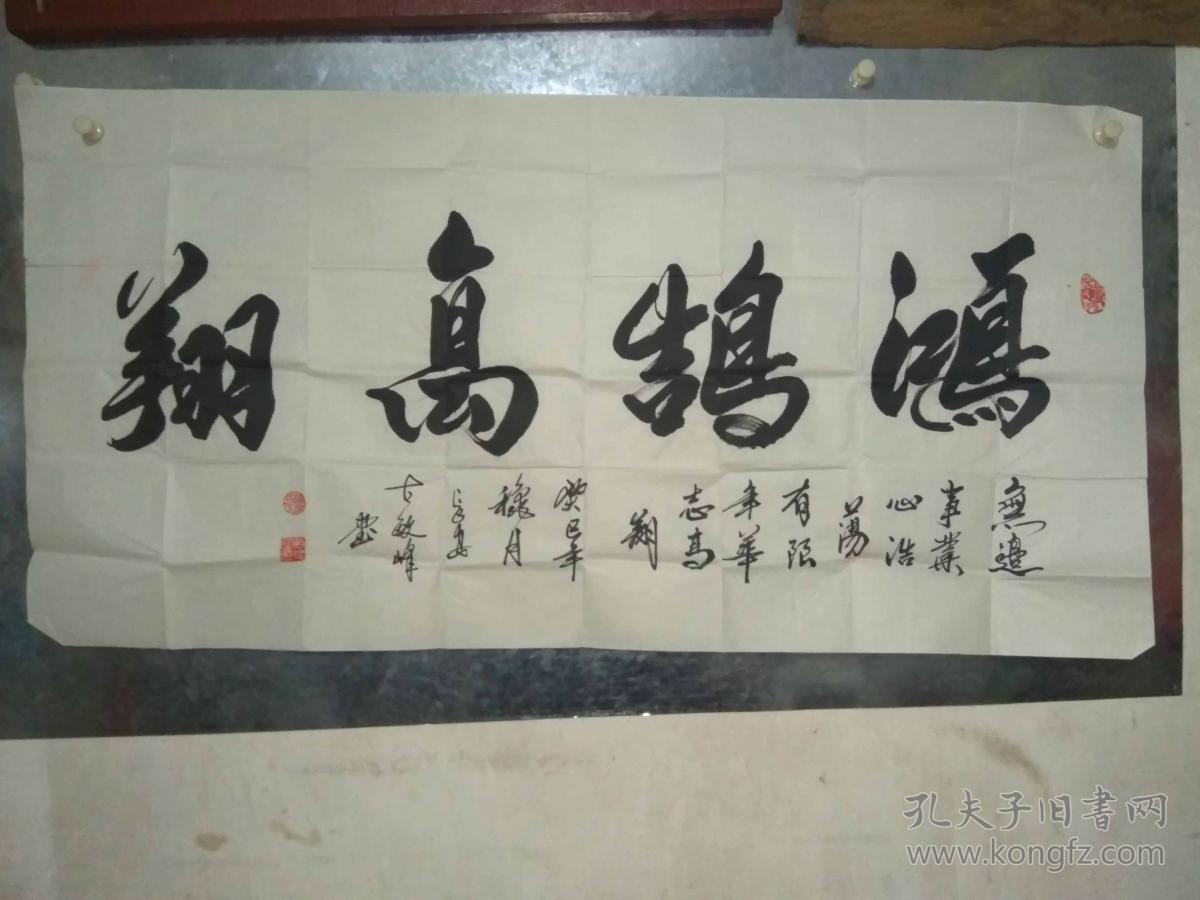 鴻鵠高翔
無邊
事業
心浩
蕩
有限
年華
志高
翔
癸巳年
穐月
古敏峰
书
孔夫子旧書网
www.kongfz.com